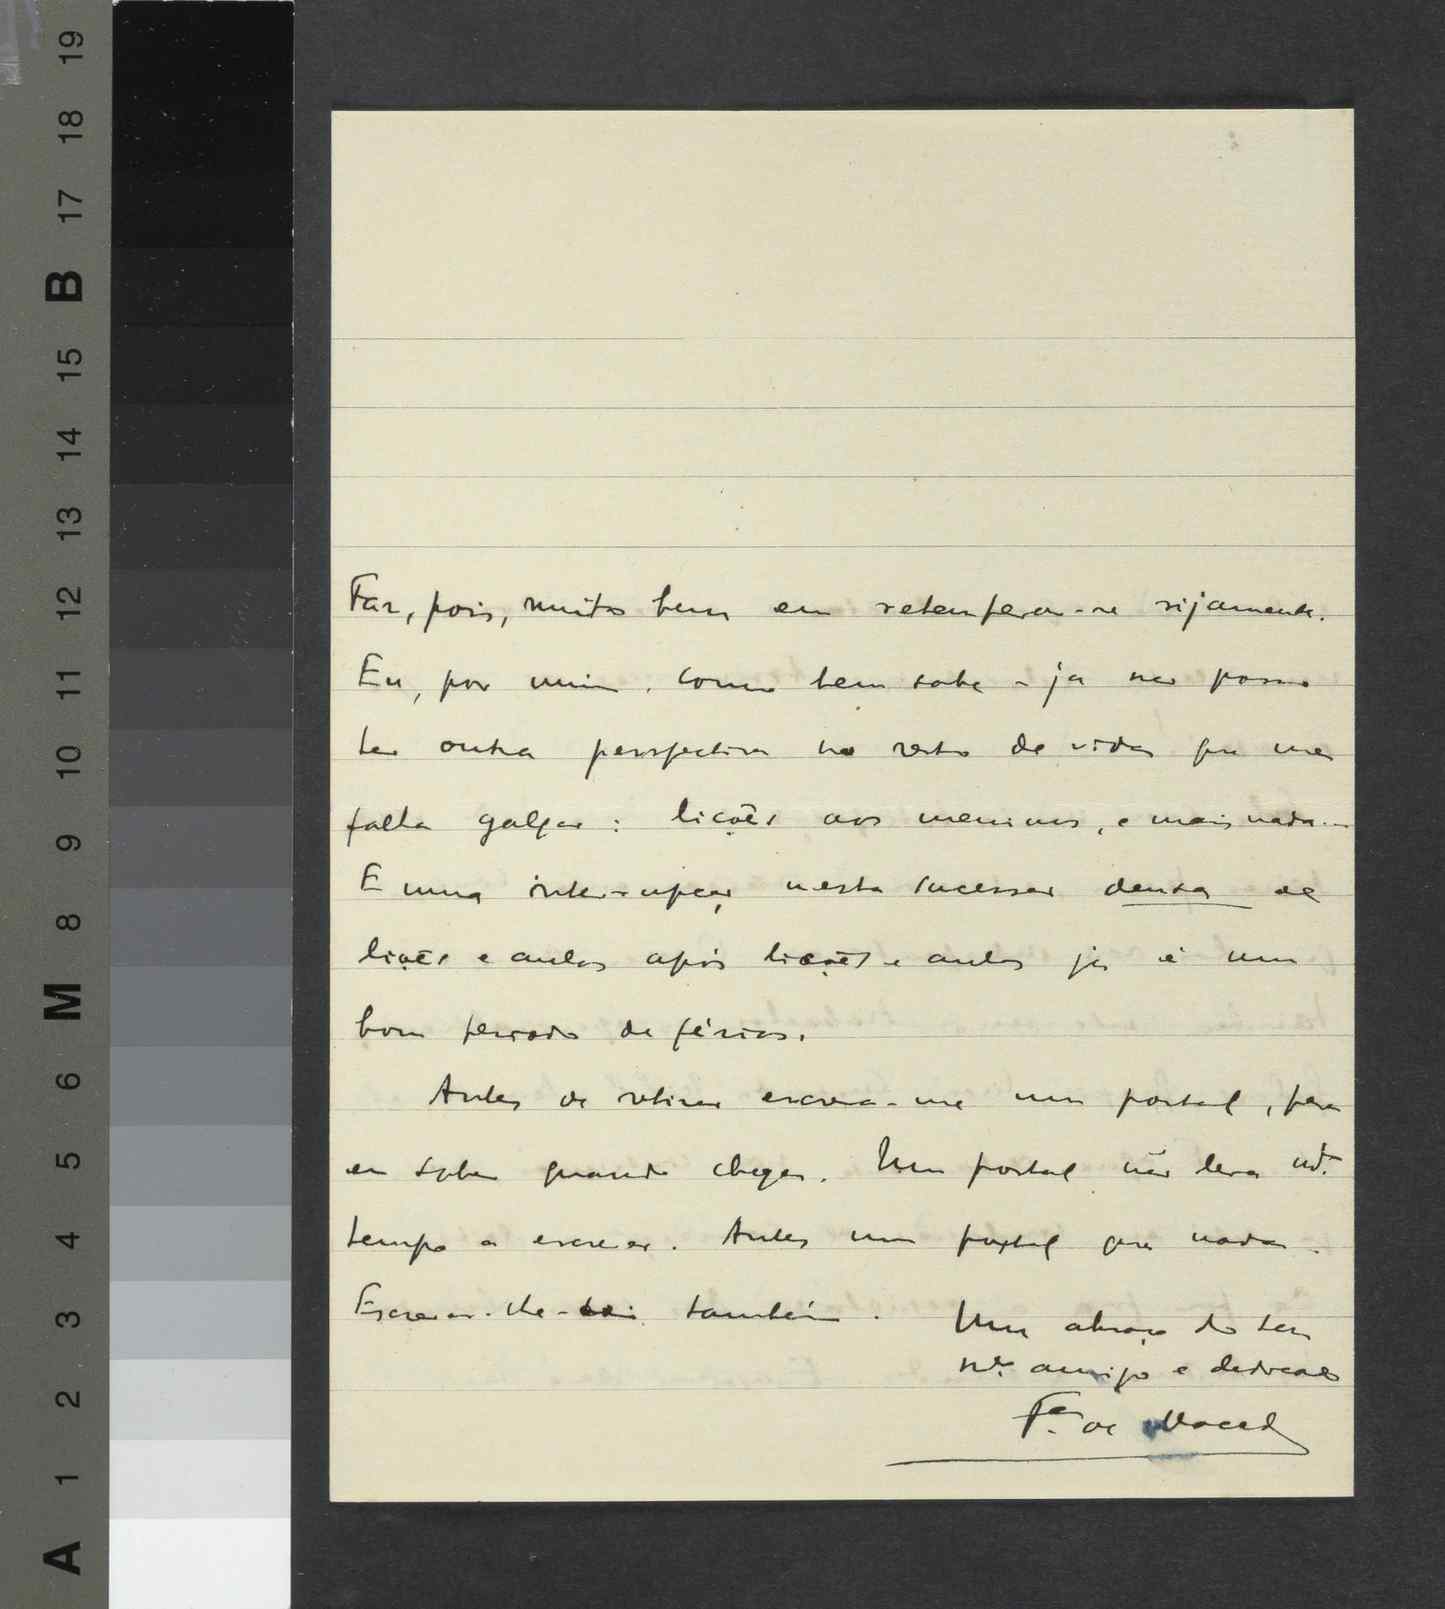 19
18
17
B
15
14
13
12
11
10
9
8
M
6
5
4
3
2
1
A
Faz, pois, muito bem em retemperar-se rijamente.
Eu, por mim, como bem sabe - já não posso
ter outra perspectiva no resto de vida que me
falta galgar: lições aos meninos, e mais nada...
E uma interrupção nesta sucessão densa de
lições e aulas após lições e aulas já é um
bom período de férias.
Antes de retirar escreva-me um postal, para
eu saber quando chega. Um postal não leva md.to
tempo a escrever. Antes um postal que nada.
Escrever-lhe-ei também.
Um abraço do seu
m.to amigo e dedicado
F.co de Macedo